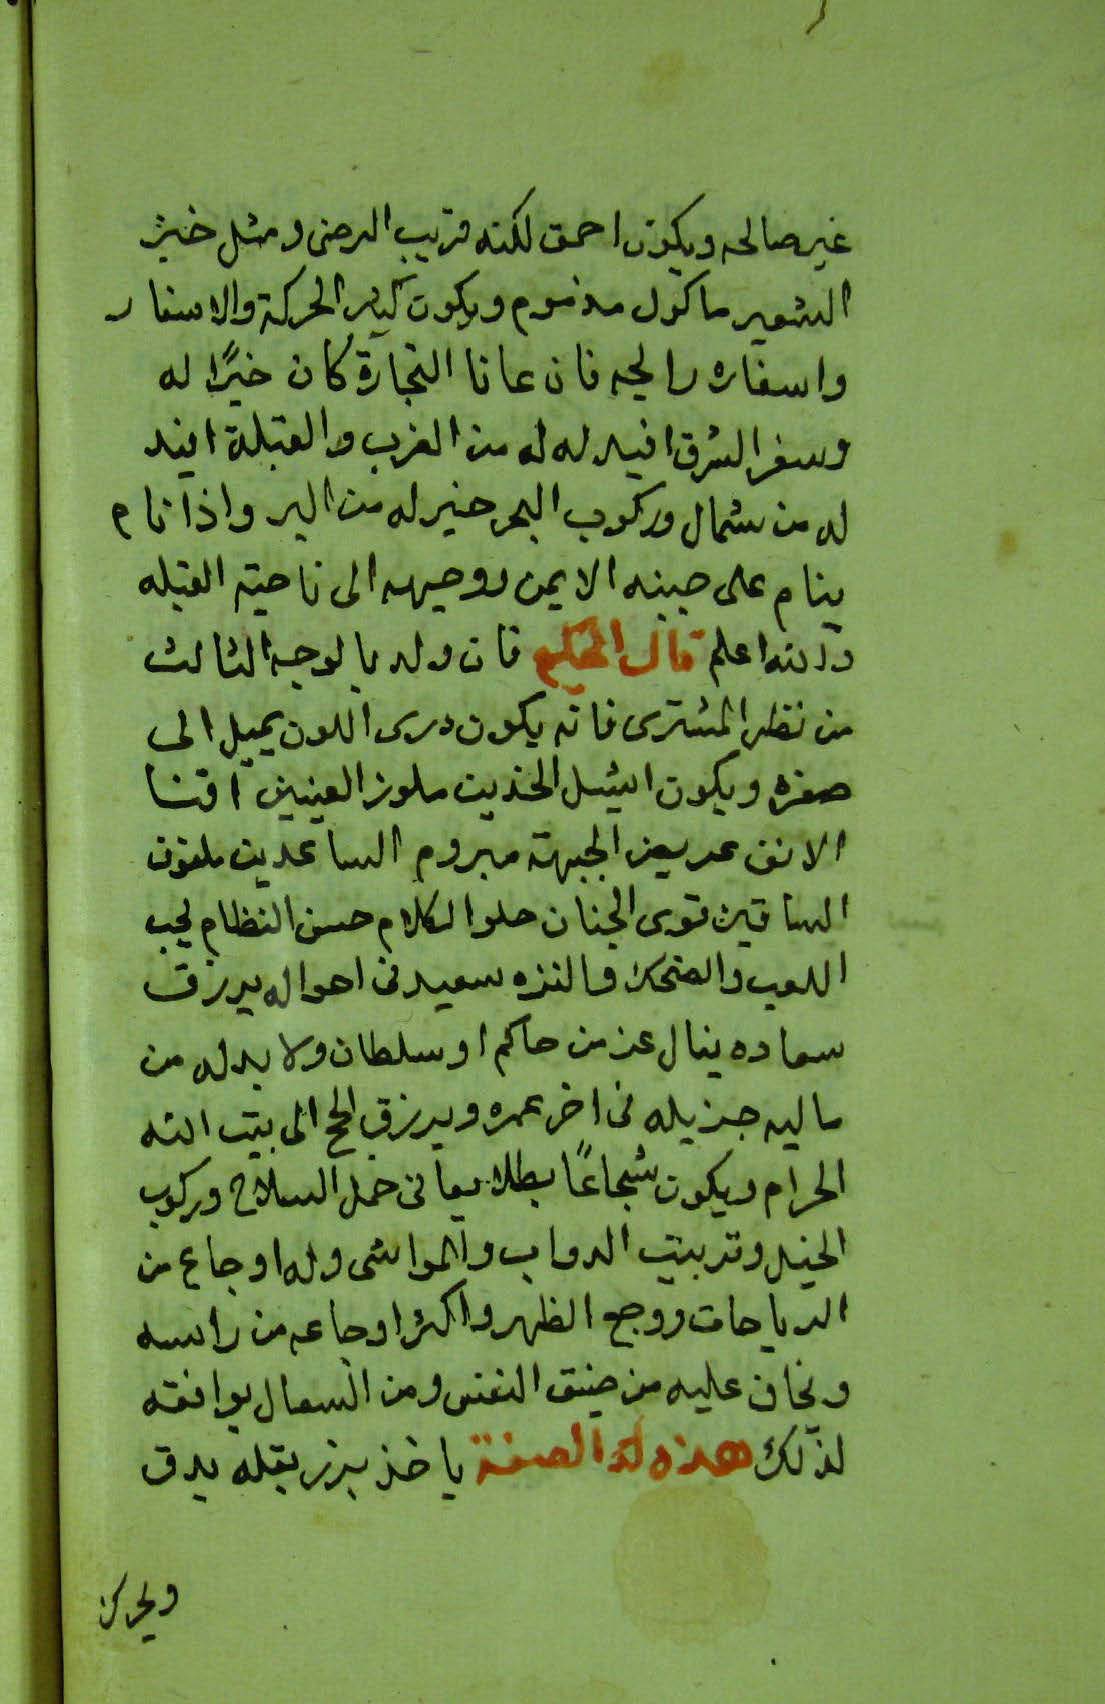 غير صالحه ويكون احمق لكنه قريب الرضى ومثل خبز
الشعير ماكول مذموم ويكون كثير الحركة والاسفار
واسفاره رابحه فان عانا التجارة كان خيرًا له
وسفر الشرق افيد له من الغرب والقبلة افيد
له من شمال وركوب البحر خير له من البر واذا نام
ينام على جنبه الايمن ووجهه الى ناحية القبله
والله اعلم قال الحكيم فان ولد بالوجه الثالث
من نظر المشترى فانه يكون درى اللون يميل الى
صفره ويكون اسيل الخدين ملوز العينين اقنا
الانف عريض الجبهة مبروم الساعدين ملفوف
الساقين قوى الجنان حلو الكلام حسن النظام يحب
اللعب والضحك والنزه سعيد فى احواله يرزق
سعاده ينال عز من حاكم او سلطان ولا بد له من
ماليه جزيله فى اخر عمره ويرزق الحج الى بيت الله
الحرام ويكون شجاعًا بطلا يعانى حمل السلاح وركوب
الخيل وتربيت الدواب والمواشى وله اوجاع من
الرياحات ووجع الظهر واكثر اوجاعه من راسه
ويخاف عليه من ضيق النفس ومن السعال يوافقه
لذلك هذه الصفة ياخذ بزر بقله يدق